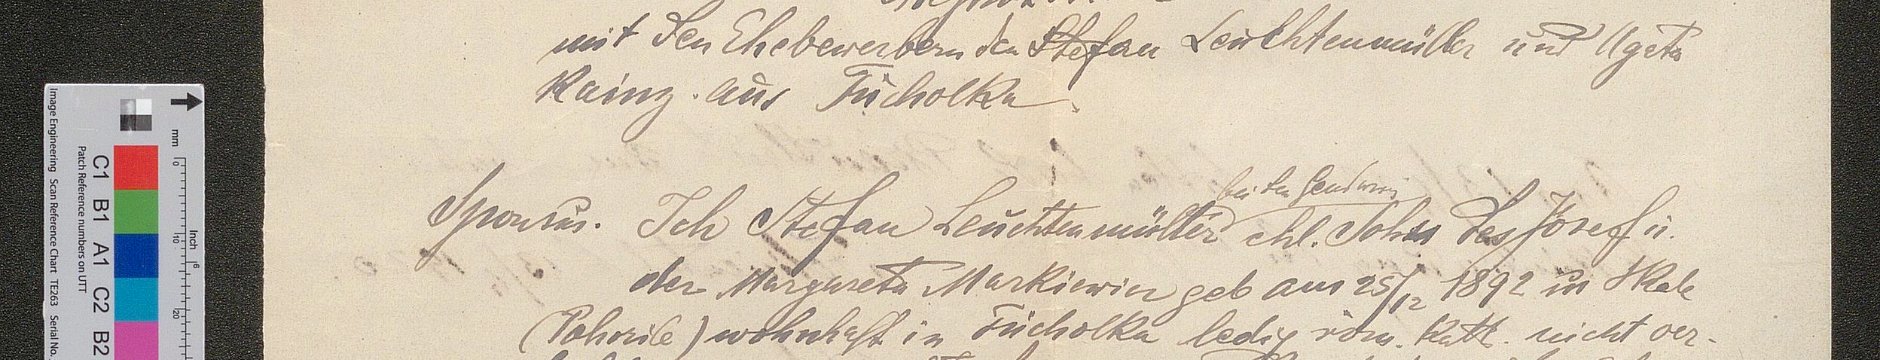 mit den Ehebewerbern den Stefan Leuchtenmüller und Agata
Kainz. aus Tucholka.
bei den
Sponsus. Ich Stefan Leuchtenmüller ehl. Sohn des Josef u.
der Margareta Markiewicz geb am 25/12 1892 in Skole
(Pohorile) wohnhaft in Tucholka ledig röm. kath. nicht ver-
mm
0
10
20
Inch
C1 B1 A1 C2 B2
Patch Reference numbers on UTT
Image Engineering Scan Reference Chart TE263 Serial No.